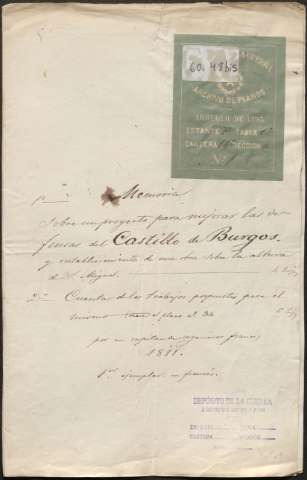 60.4865
ARCHIVO DE PLANOS
ARREGLO DE 1913
ESTANTE TABLA
CARTERA SECCION
Nº
Memoria
Sobre un proyecto para mejorar las de-
fensas del Castillo de Burgos
y establecimiento de una obra sobre la altura
de S. Miguel.
2º Cuenta de los trabajos propuestos para el
mismo
por un capitan de ingenieros frances
1811.
1er ejemplar en francés.
DEPÓSITO DE LA GUERRA